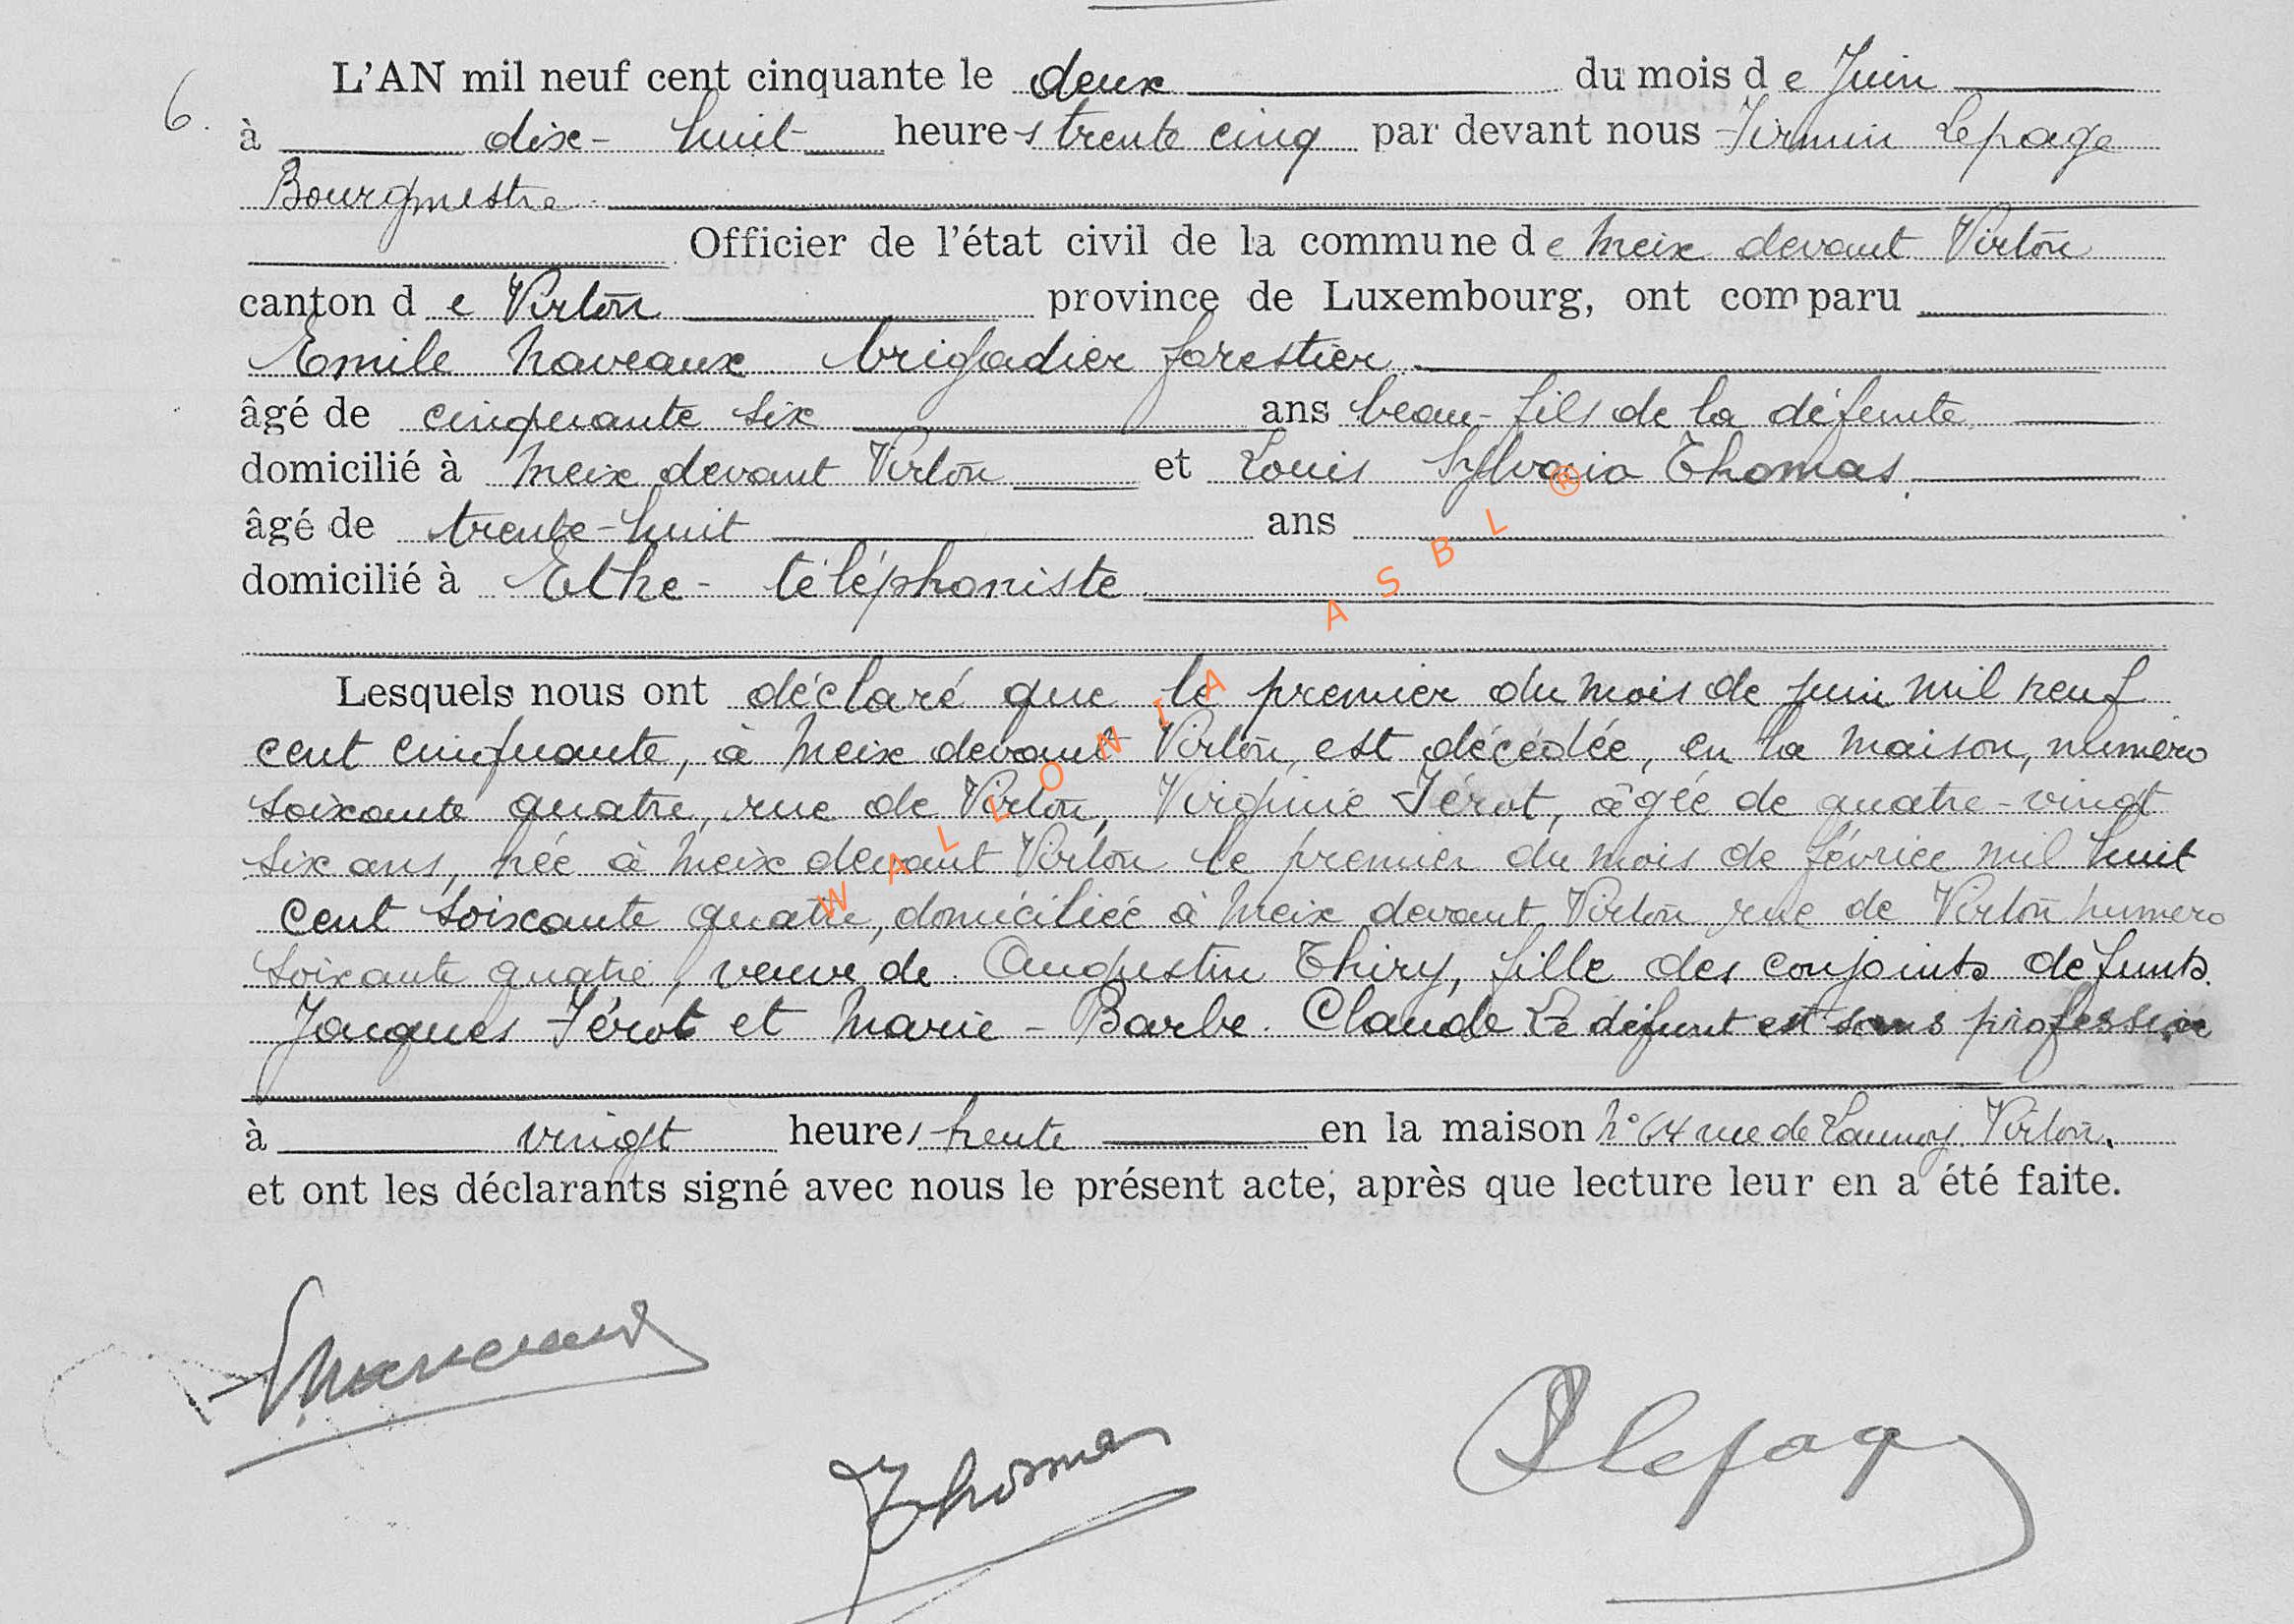 L'AN mil neuf cent cinquante le deux du mois de Juin
6. à dix-huit heures trente cinq par devant nous Firmin Lepage
Bourgmestre
Officier de l'état civil de la commune de Meix devant Virton
canton de Virton province de Luxembourg, ont comparu
Emile Naveaux brigadier forestier
âgé de cinquante six ans beau-fils de la défunte
domicilié à Meix devant Virton et Louis Sylvain Thomas
âgé de trente-huit ans
domicilié à Ethe - téléphoniste
Lesquels nous ont déclaré que le premier du mois de juin mil neuf
cent cinquante, à Meix devant Virton, est décédée, en la maison, numéro
soixante quatre, rue de Virton, Virginie Férot, âgée de quatre-vingt
six ans, née à Meix devant Virton le premier du mois de février mil huit
cent soixante quatre, domiciliée à Meix devant Virton rue de Virton numero
soixante quatre, veuve de Augustin Thiry, fille des conjoints défunts
Jacques Férot et Marie-Barbe Claude Le défunt est sans profession
à vingt heures trente en la maison N° 64 rue de Virton.
et ont les déclarants signé avec nous le présent acte, après que lecture leur en a été faite.
Thomas
Lepage
WALLONIA ASBL ®